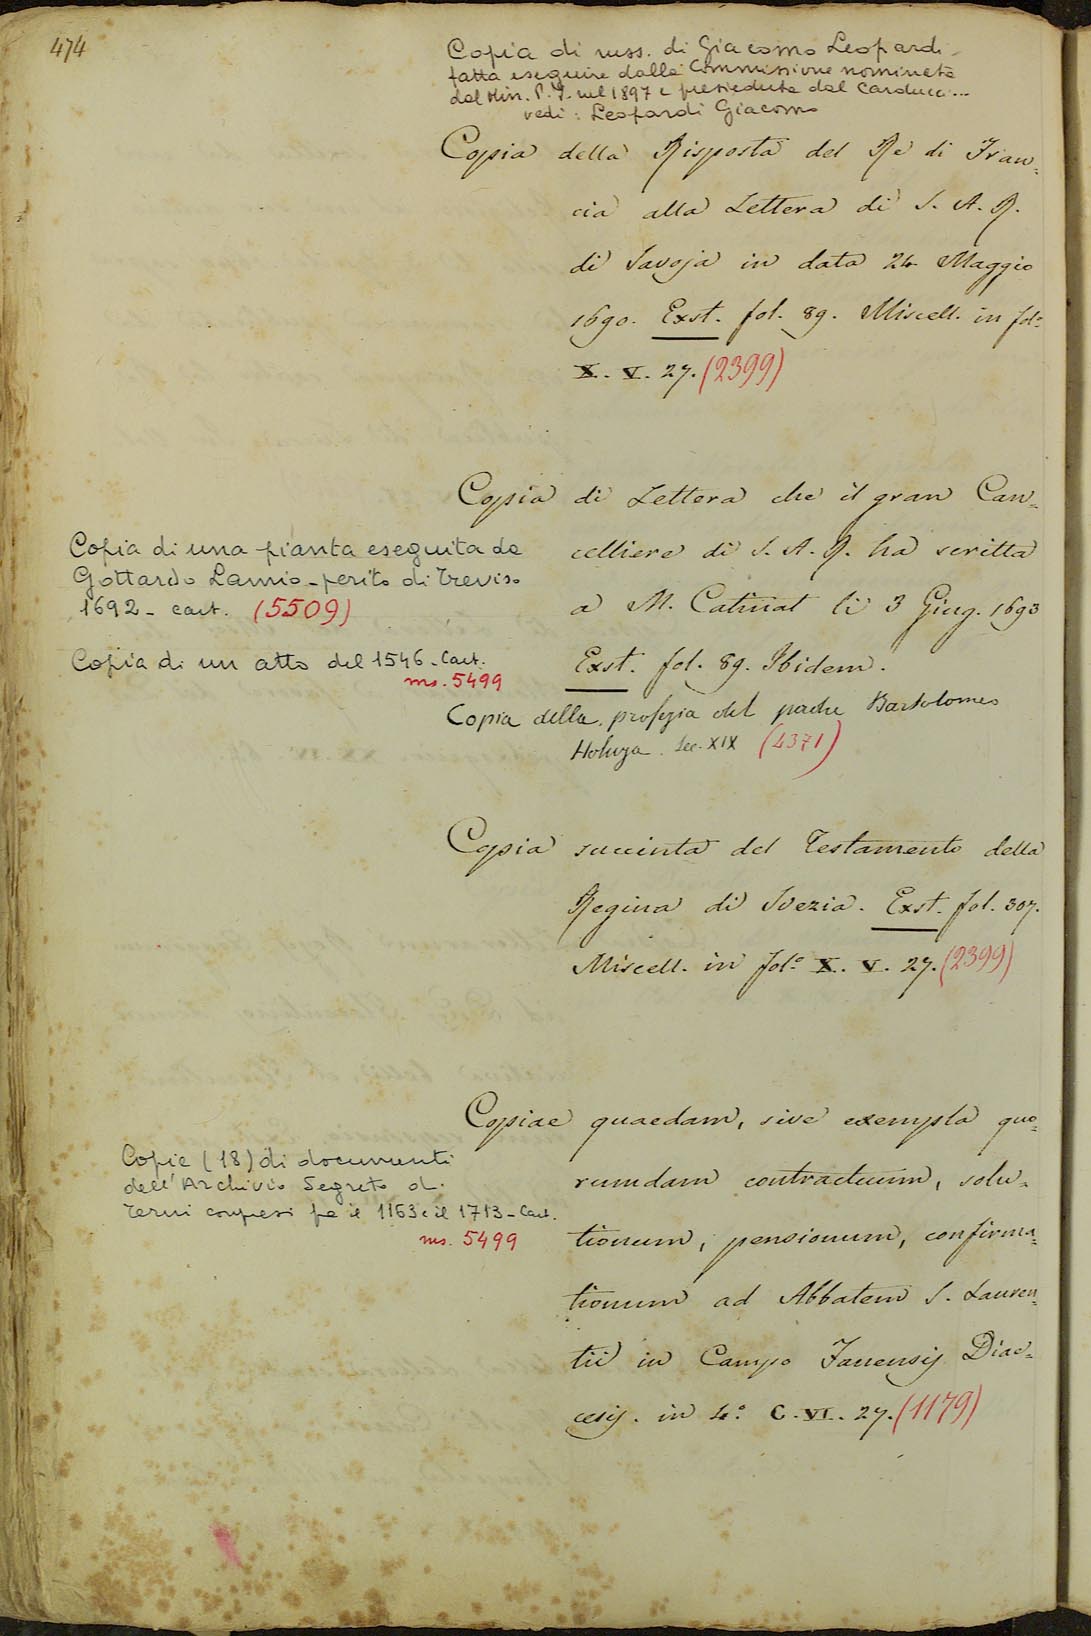 474
Copia di mss. di Giacomo Leopardi
fatta eseguire dalla Commissione nominata
dal Min. P. I. nel 1897 e presieduta dal Carducci...
vedi: Leopardi Giacomo
Copia della Risposta del Re di Fran=
cia alla Lettera di S. A. R.
di Savoja in data 24 Maggio
1690. Exst. fol. 89. Miscell. in fol.
X. V. 27. (2399)
Copia di Lettera che il gran Can=
celliere di S. A. R. ha scritta
a M. Catinat li 3 Giug. 1693
Exst. fol. 89. Ibidem.
Copia di una pianta eseguita da
Gottardo Lamio - perito di Treviso
1692 - cart. (5509)
Copia di un atto del 1546 - Cart.
ms. 5499
Copia della profezia del padre Bartolomeo
Sec. XIX (4371)
Copia succinta del Testamento della
Regina di Svezia. Exst. fol. 307.
Miscell. in fol.º X. V. 27. (2399)
Copiae quaedam, sive exempla quo=
rumdam contractuum, solu=
tionum, pensionum, confirma=
tionum ad Abbatem S. Lauren=
tii in Campo Fanensis Diae=
cesis. in 4.º C. VI. 27. (1179)
Copie (18) di documenti
dell'Archivio Segreto di
Terni compresi fra il 1163 e il 1713 - Cart.
ms. 5499